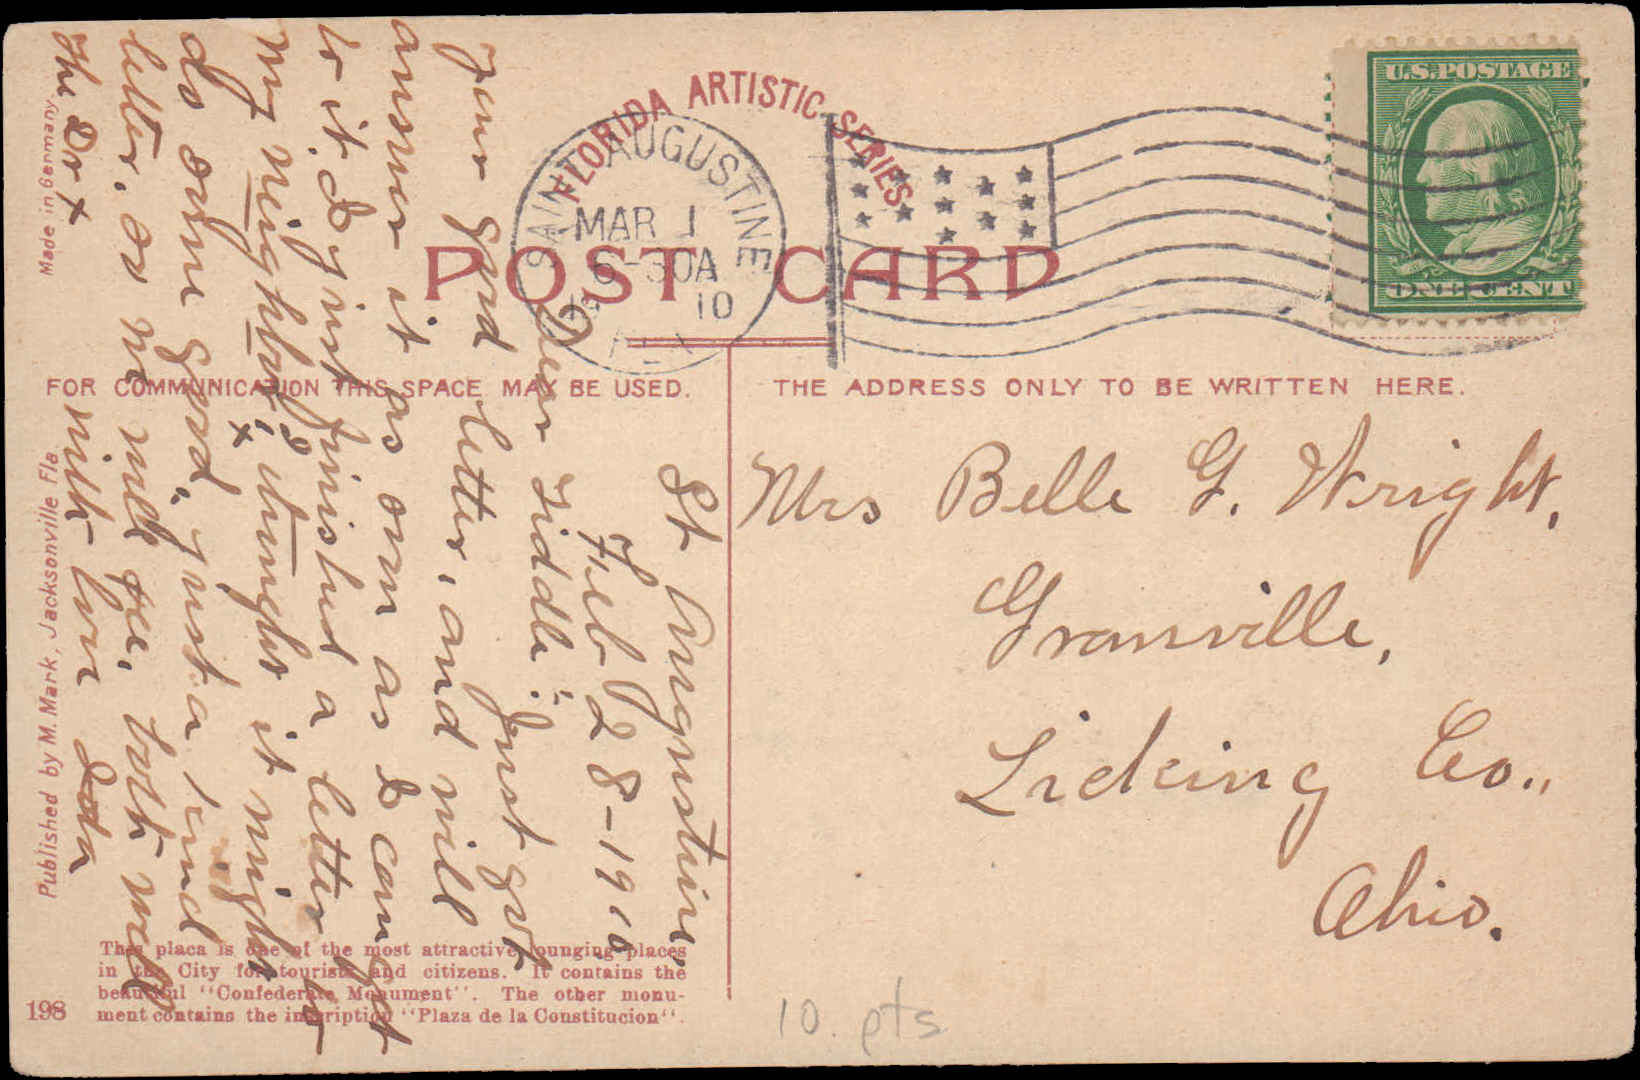 FLORIDA ARTISTIC SERIES
POST CARD
SAINT AUGUSTINE
MAR 1
-30A
10
FLA.
U.S. POSTAGE
ONE CENT
FOR COMMUNICATION THIS SPACE MAY BE USED.
THE ADDRESS ONLY TO BE WRITTEN HERE.
Mrs Belle G. Wright,
Granville,
Licking Co.,
Ohio.
St Augustine,
Feb 28-1910
Dear Tiddle:- Just got
your good letter, and will
answer it as soon as I can get
to it. I just finished a letter to
my neighbor, & thought it might
do some good, just a kind
letter, so we will see, both well
with love Ida
The Dr x
x
Made in Germany
Published by M. Mark, Jacksonville Fla.
This placa is one of the most attractive lounging places
in the City for tourists and citizens. It contains the
beautiful "Confederate Monument". The other monu-
ment contains the inscription "Plaza de la Constitucion".
198
10. pts